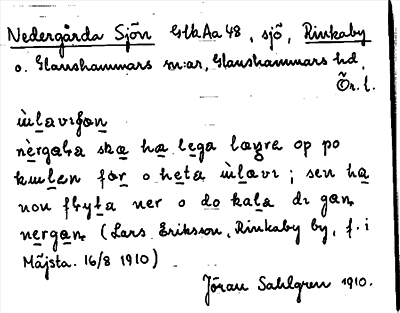 Nedergårda Sjön Gbk Aa 48, sjö, Rinkaby
o. Glanshammars sn:ar, Glanshammars hd,
Ör. l.
nergaḷa ska ha lega længre op po
o heta ; sen ha
non flyta ner o do kala di gan
nergan (Lars Eriksson, Rinkaby by, f. i
Måjsta. 16/8 1910)
Jöran Sahlgren 1910.